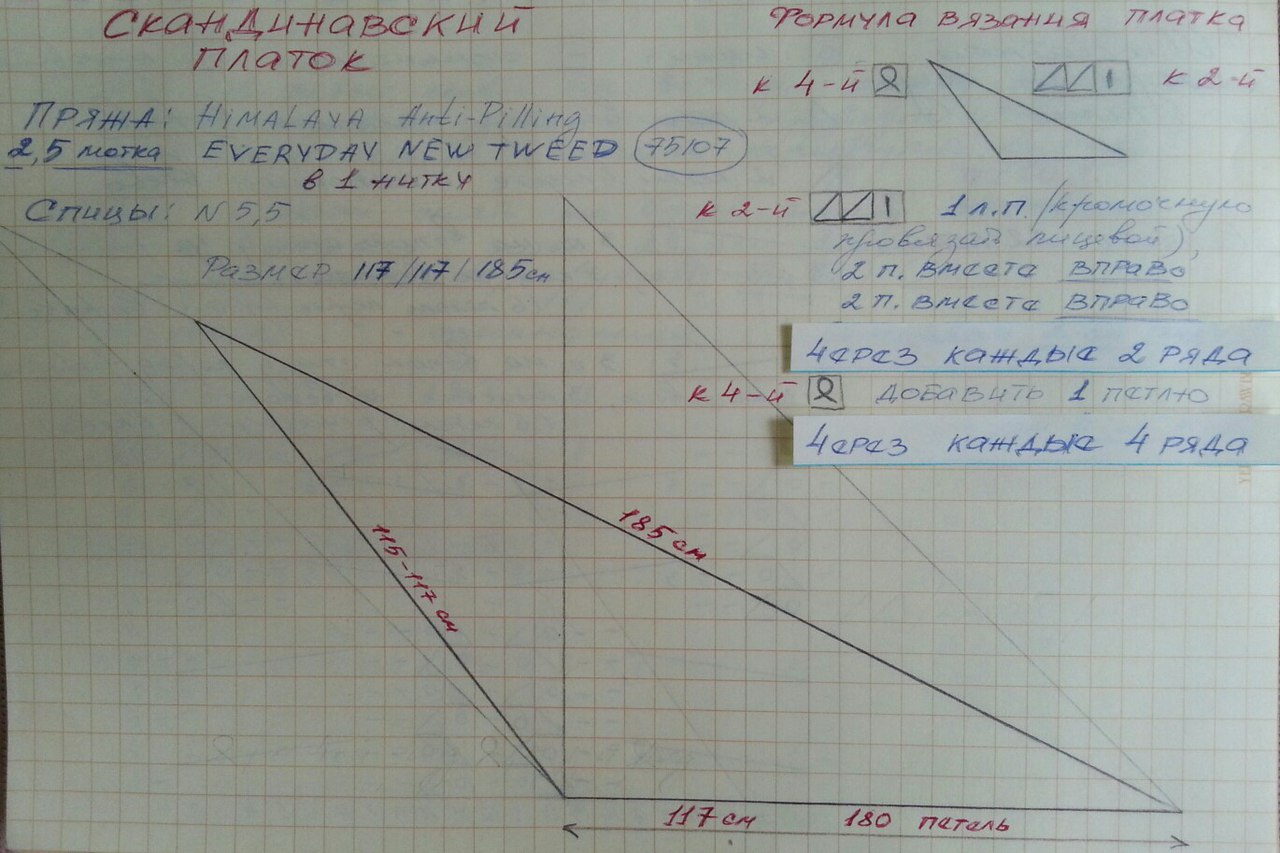 Скандинавский
платок
Пряжа: HIMALAYA Anti-Pilling
2,5 мотка EVERYDAY NEW TWEED 75107
в 1 нитку
Спицы: N 5,5
Размер 117/117/185см
115-117 см
185 см
117 см 180 петель
Формула вязания платка
к 4-й к 2-й
к 2-й 1 л.п. (кромочную
провязать лицевой)
2 п. вместе вправо
2 п. вместе вправо
через каждые 2 ряда
к 4-й добавить 1 петлю
через каждые 4 ряда